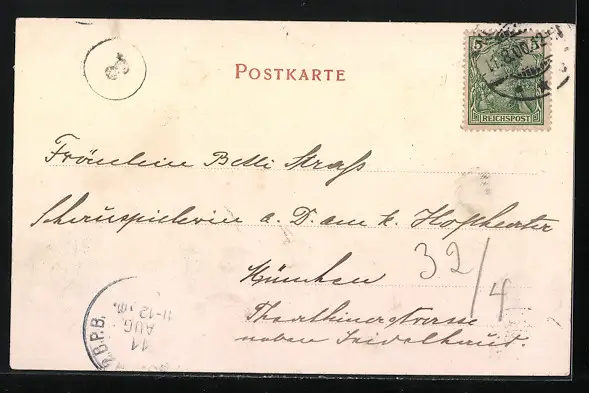 POSTKARTE
5
REICHSPOST
Fräulein Betti Straß
Schauspielerin a. D. am k. Hoftheater
32/4
München
Theatinerstrasse
neben
K.B.P.B.
11
AUG
11-12